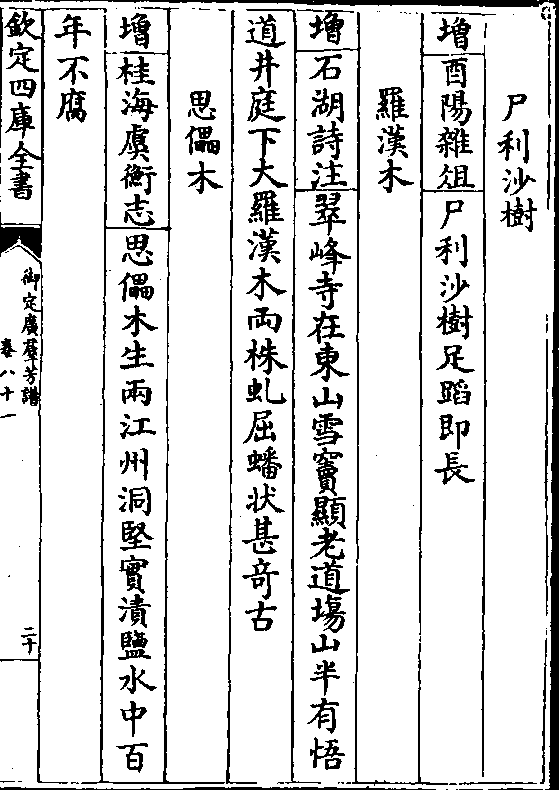 尸利沙樹
增酉陽雜俎尸利沙樹足蹈即長
羅漢木
增石湖詩注翠峰寺在東山雪竇顯老道塲山半有悟
道井庭下大羅漢木兩株虬屈蟠状甚竒古
思儡木
增桂海虞衡志思儡木生兩江州洞堅實漬鹽水中百
年不腐
欽定四庫全書
御定廣羣芳譜
卷八十一
二十